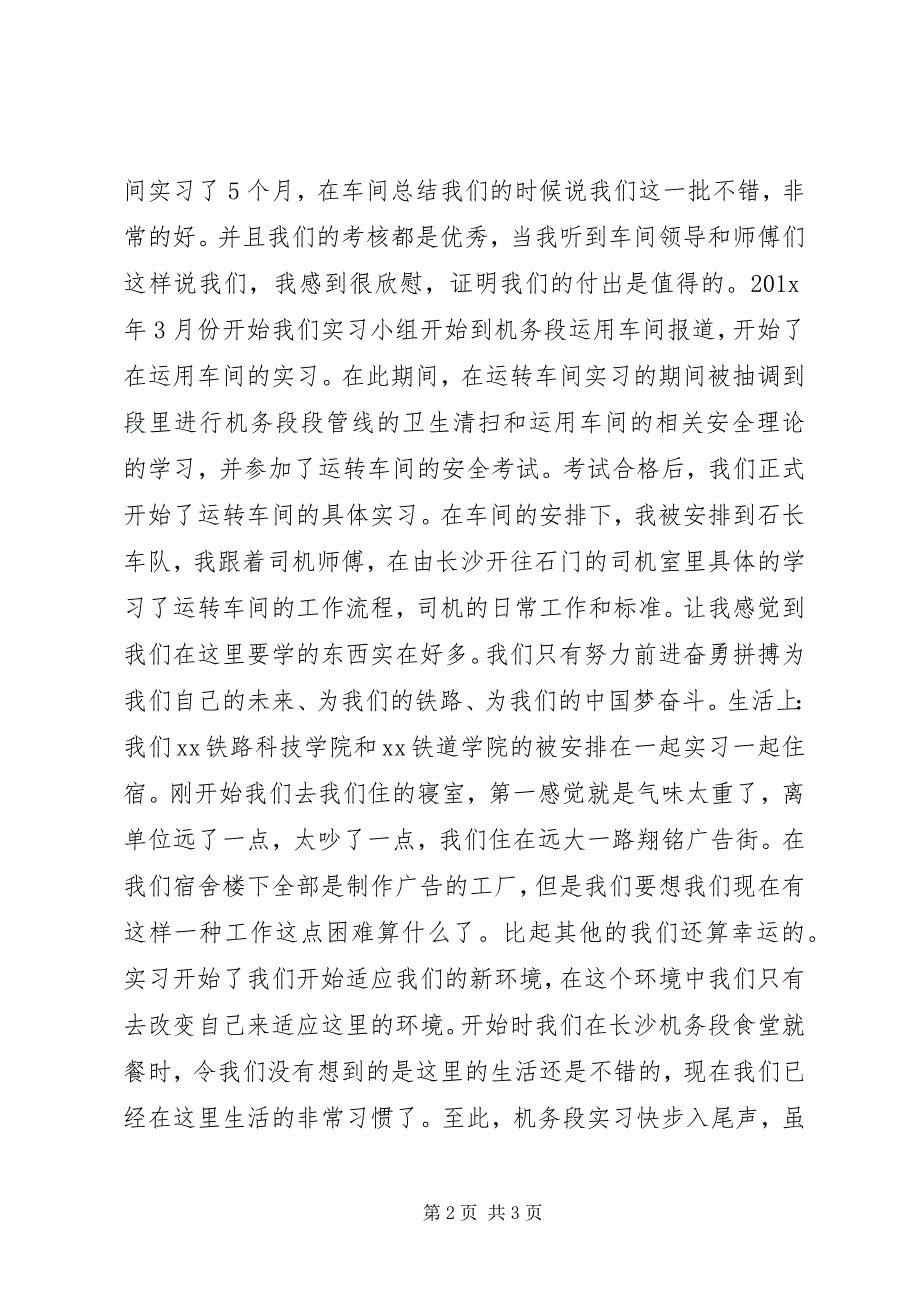 间实习了 5 个月，在车间总结我们的时候说我们这一批不错，非
常的好。并且我们的考核都是优秀，当我听到车间领导和师傅们
这样说我们，我感到很欣慰，证明我们的付出是值得的。201x
年 3 月份开始我们实习小组开始到机务段运用车间报道，开始了
在运用车间的实习。在此期间，在运转车间实习的期间被抽调到
段里进行机务段段管线的卫生清扫和运用车间的相关安全理论
的学习，并参加了运转车间的安全考试。考试合格后，我们正式
开始了运转车间的具体实习。在车间的安排下，我被安排到石长
车队，我跟着司机师傅，在由长沙开往石门的司机室里具体的学
习了运转车间的工作流程，司机的日常工作和标准。让我感觉到
我们在这里要学的东西实在好多。我们只有努力前进奋勇拼搏为
我们自己的未来、为我们的铁路、为我们的中国梦奋斗。生活上：
我们 xx 铁路科技学院和 xx 铁道学院的被安排在一起实习一起住
宿。刚开始我们去我们住的寝室，第一感觉就是气味太重了，离
单位远了一点，太吵了一点，我们住在远大一路翔铭广告街。在
我们宿舍楼下全部是制作广告的工厂，但是我们要想我们现在有
这样一种工作这点困难算什么了。比起其他的我们还算幸运的。
实习开始了我们开始适应我们的新环境，在这个环境中我们只有
去改变自己来适应这里的环境。开始时我们在长沙机务段食堂就
餐时，令我们没有想到的是这里的生活还是不错的，现在我们已
经在这里生活的非常习惯了。至此，机务段实习快步入尾声，虽
第 2 页 共 3 页